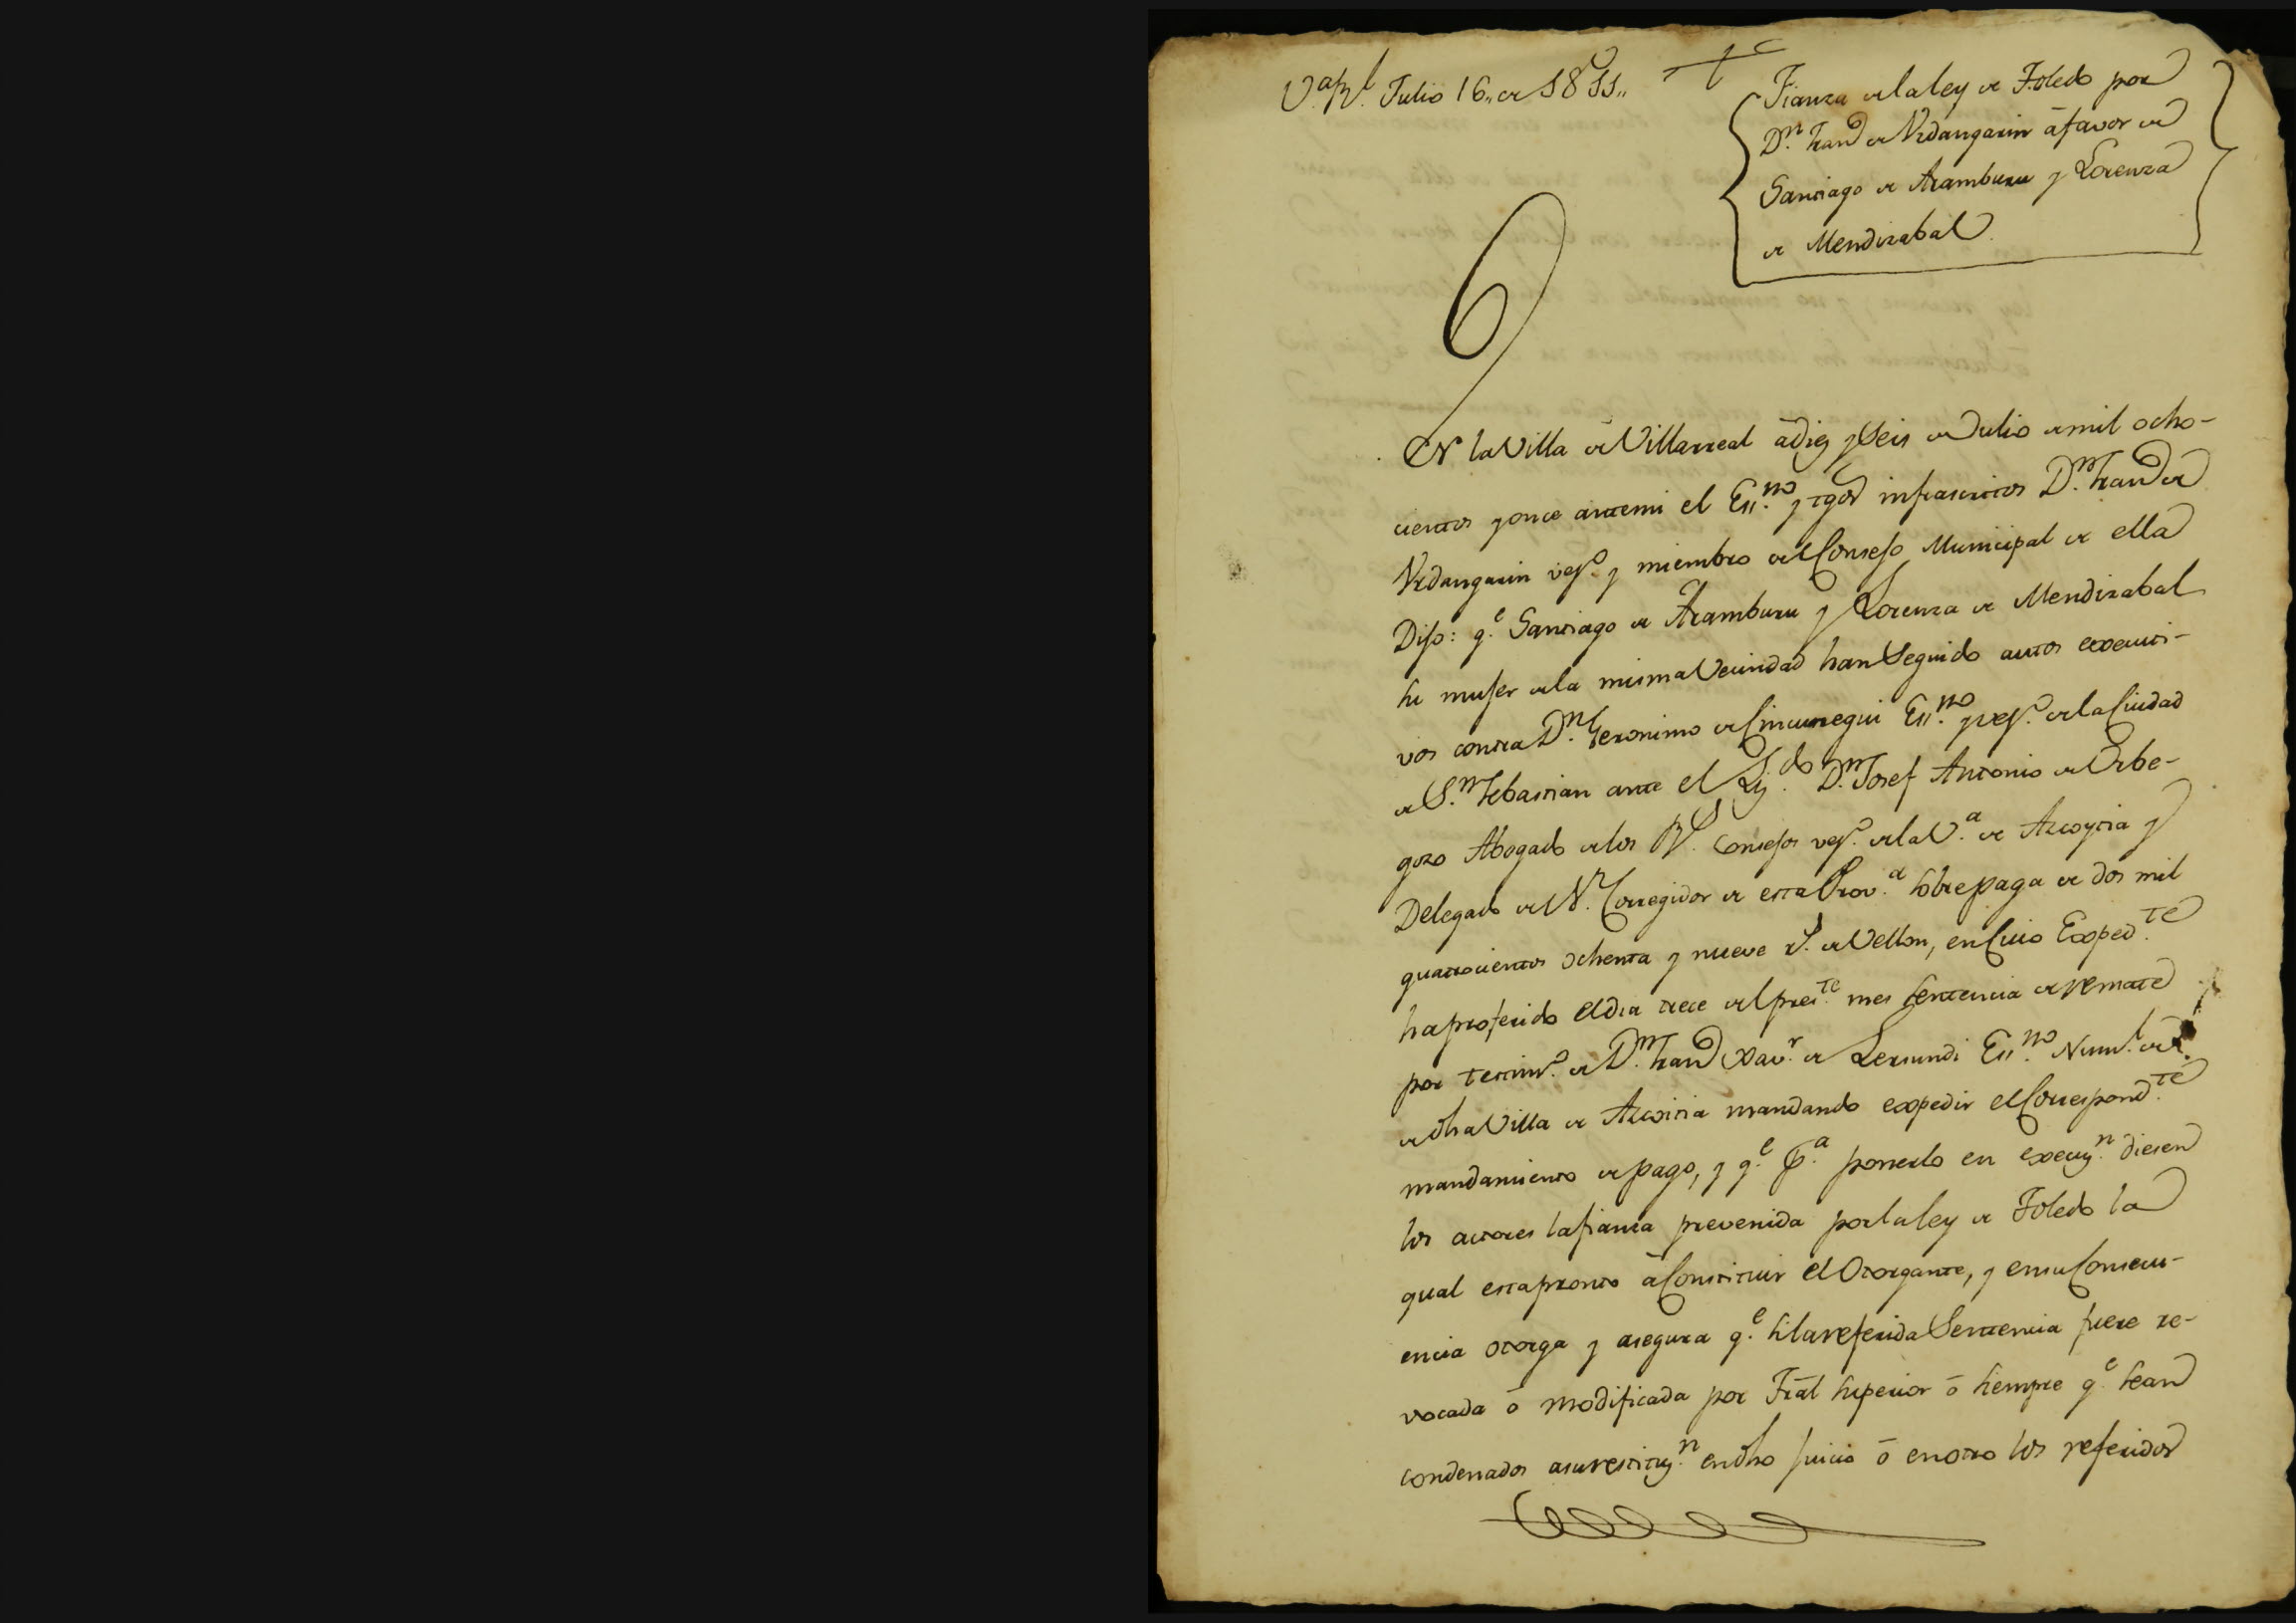 V.ª R.l Julio 16,, de 1811,,
Fianza de la ley de Toledo por
D.n Fran.co de Urdangarin á favor de
Santiago de Aramburu y Lorenza
de Mendizabal
En la Villa de Villarreal á diez y seis de Julio de mil ocho-
cientos y once ante mi el Ess.no y tgos infrascritos D.n Fran.co de
Urdangarin vez.o y miembro del Consejo Municipal de ella
Dijo: q.e Santiago de Aramburu y Lorenza de Mendizabal
su mujer de la misma Vecindad han seguido autos executi-
vos contra D.n Geronimo de Cincunegui Ess.no y vez.o de la Ciudad
de S.n Sebastian ante el Liz.do D.n Josef Antonio de Orbe-
gozo Abogado de los R.s Consejos vez.o de la V.a de Azcoytia y
Delegado del S.r Corregidor de esta Prov.a sobre paga de dos mil
quatrocientos ochenta y nueve r.s de Vellon, en Cuio Exped.te
ha proferido el dia trece del pres.te mes Sentencia de remate
por testim.o de D.n Fran.co Xav.r de Lersundi Ess.no Num.l
de dha Villa de Azcoitia mandando expedir el Correspond.te
mandamiento de pago, y q.e p.a ponerlo en execuz.n diesen
los actores la fianza prevenida por la ley de Toledo la
qual esta pronto á Constituir el Otorgante, y en su Consecu-
encia otorga y asegura q.e si la referida Sentencia fuere re-
vocada ó modificada por Trâl Superior ó siempre q.e sean
condenados a su restituz.n en dho juicio ó en otro los referidos